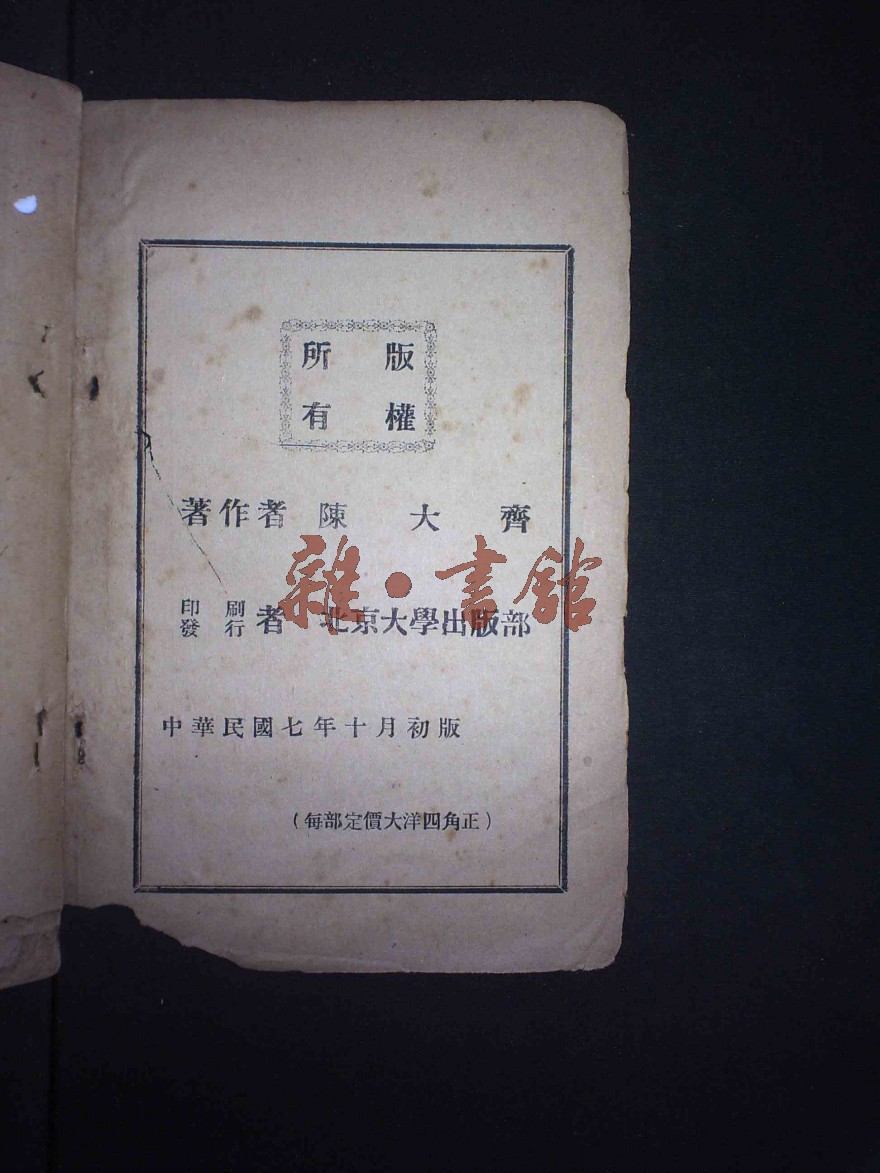 版權
所有
著作者 陳大齊
印刷
發行 者 北京大學出版部
雜·書館
中華民國七年十月初版
(每部定價大洋四角正)